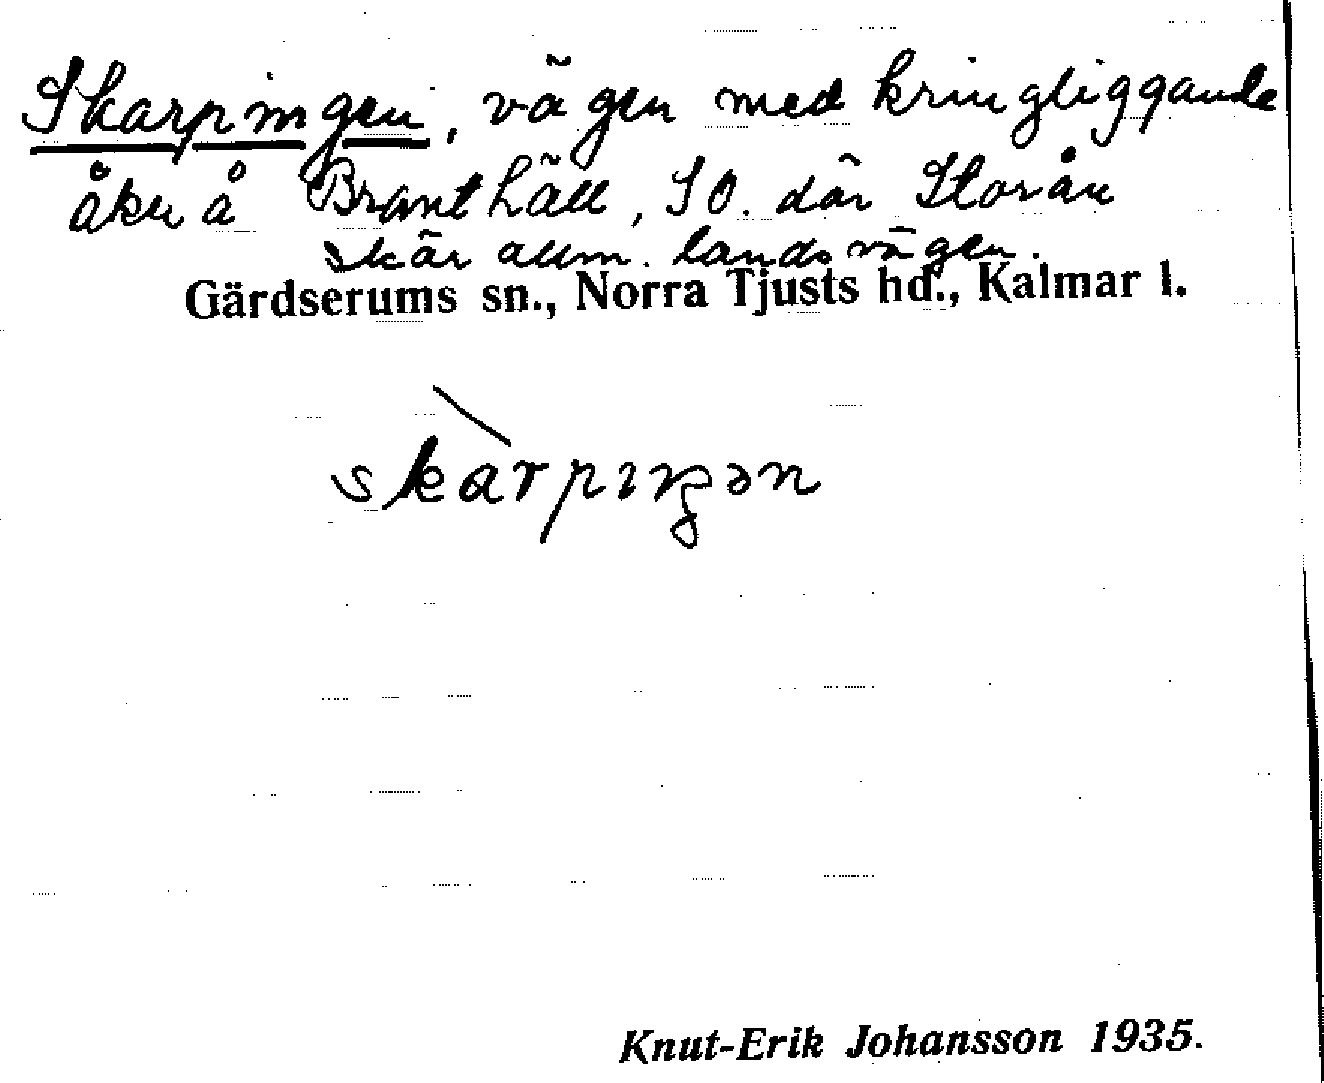 Skarpingen, vägen med kringliggande
åker å Branthäll, SO. där Storån
skär allm. landsvägen.
Gärdserums sn., Norra Tjusts hd., Kalmar l.
skàrpıŋən
Knut-Erik Johansson 1935.